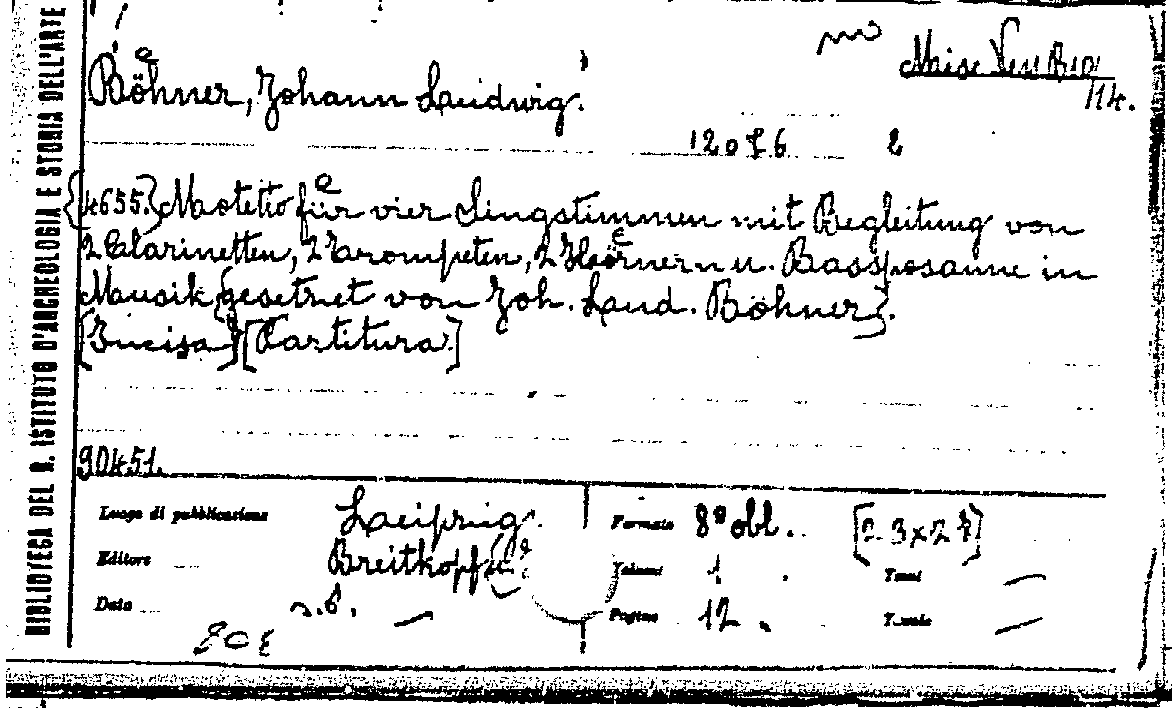 BIBLIOTECA DEL R. ISTITUTO D'ARCHEOLOGIA E STORIA DELL'ARTE
Böhner, Johann Ludwig.
114.
12076 2
{4655.} Motetto für vier Singstimmen mit Begleitung von
2 Clarinetten, 2 Trompeten, 2 Hörnern u. Bassposaune in
Musik gesetzet von Joh. Lud. Böhner}.
[Incisa] [Partitura]
90451.
Luogo di pubblicazione Leipzig. Formato 8º obl.
Editore Breitkopf Volumi 1 Tomi —
Data s.d. — Pagine 12. Tavole —